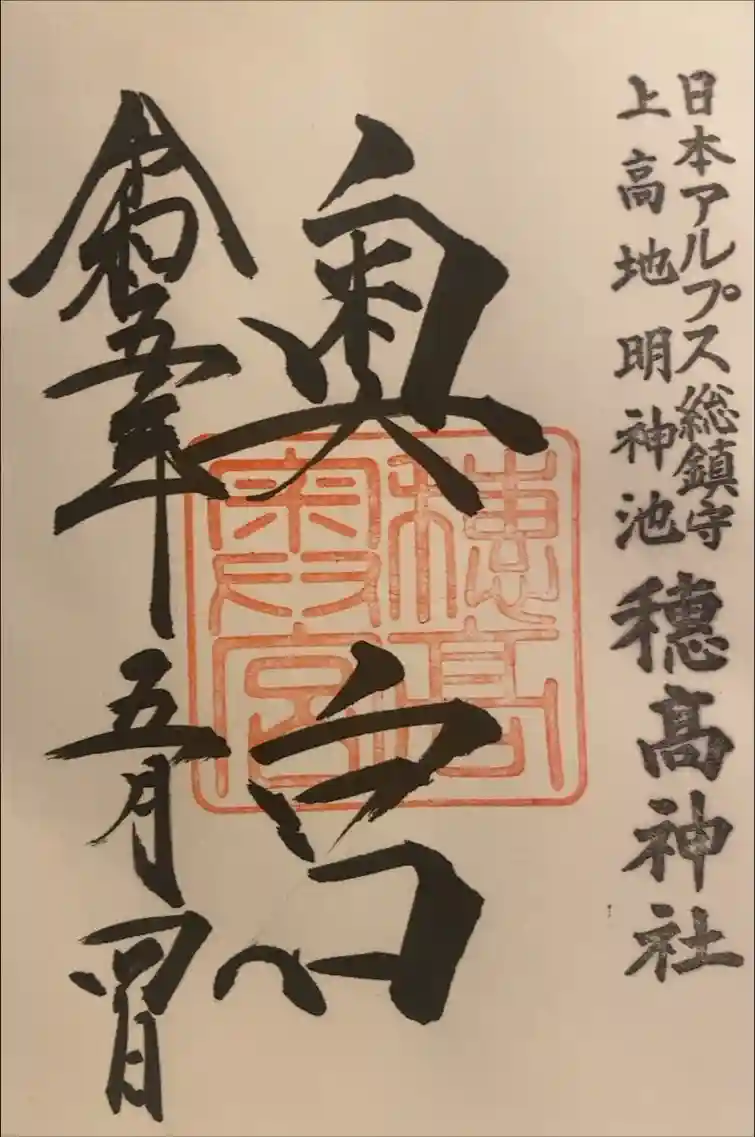 日本アルプス総鎮守
上高地明神池
穂高神社
奥宮
穂高
奥宮
令和五年五月四日